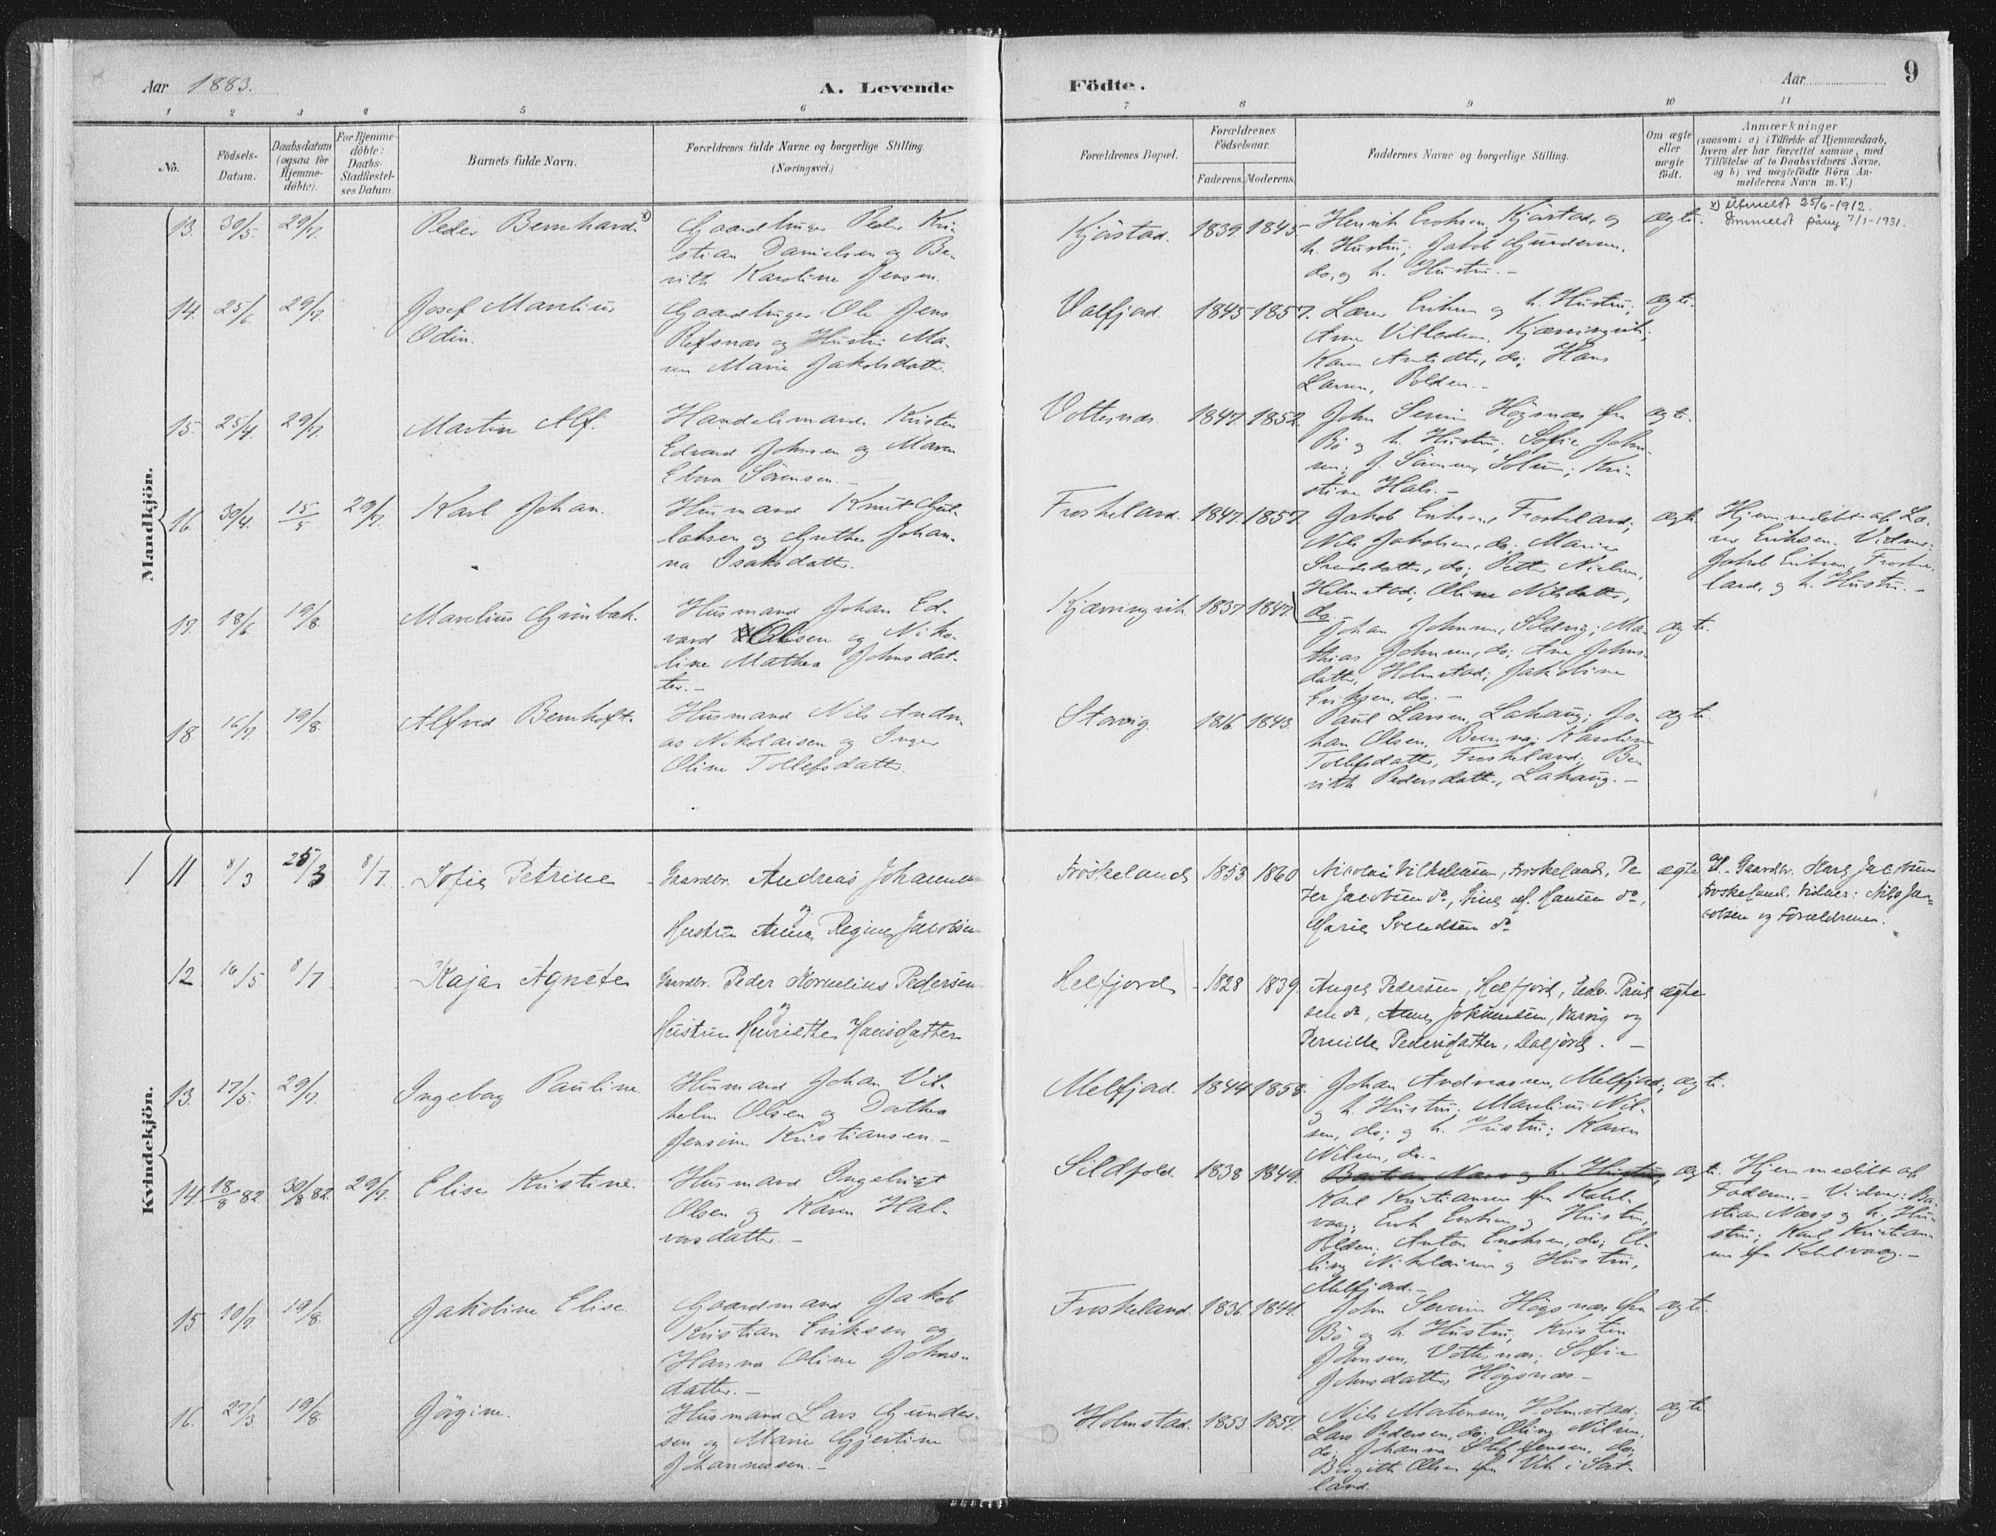 Aar 1883.
A. Levende
Födte.
Aar
9
1 2 3 4 5 6 7 8 9 10 11
No.
Födsels-Datum.
Daabsdatum (ogsaa for Hjemme-döbte).
For Hjemme-döbte: Daabs-Stadfæstel-ses Datum
Barnets fulde Navn.
Forældrenes fulde Navne og borgerlige Stilling.
(Næringsvei.)
Forældrenes Bopæl.
Forældrenes Födselsaar.
Faderens. Moderens.
Faddernes Navne og borgerlige Stilling.
Om ægte eller uægte födt.
Anmærkninger
(saasom: a) i Tilfælde af Hjemmedaab,
hvem der har forrettet samme, med
Tilföielse af to Daabsvidners Navne,
og b) ved uægtefödte Börn An-
melderens Navn m. V.)
Mandkjön.
13. 30/5. 29/7. Peder Bernhard x)
Gaardbruger Peder Kri-
stian Danielsen og Be-
rith Karoline Jensen.
Kjörstad. 1839. 1845.
Henrik Enoksen, Kjörstad, og
h. Hustru; Jakob Gundersen,
do, og h. Hustru. -
ægte.
x) Utmeldt 25/6-1912.
Innmeldt påny 7/1-1931.
14. 25/6 29/7. Josef Marelius
Odin.
Gaardbruger Ole Jens
Refsnæs og Hustru Ma-
ren Marie Jakobsdatter.
Valfjord. 1845 1857.
Lærer Eriksen og h. Hustru;
Arne Villadsen, Kjærringvik;
Karen Antsdtr, do; Hans
Larsen, Polden. -
ægte.
15. 25/4. 29/7. Martin Alf.
Handelsmand Kristen
Edvard Johnsen og Maren
Elena Sörensen. -
Vottesnæs. 1847. 1852.
John Serin Högsnæs fra
Bö og h. Hustru, Sofie John-
sen; J. Sörensen, Solum; Kri-
stine Hals. -
ægte.
16. 30/4. 15/5 29/7. Karl Johan.
Husmand Knut Gul-
laksen og Grethe Johan-
na Isaksdatter.
Froskeland. 1847. 1857.
Jakob Eriksen, Froskeland;
Nils Jakobsen, do; Marie
Svendsdatter, do; Petter Nielsen,
Holmstad; Oline Nilsdatter,
do.
ægte.
Hjemmedöbt af Læ-
rer Eriksen. Vidner:
Jakob Eriksen, Froske-
land, og h. Hustru. -
17. 18/6 19/8. Marelius Grönbek.
Husmand Johan Ed-
vard Olsen og Niko-
line Mathea Johnsdat-
ter. -
Kjærringvik. 1837. 1847.
Johan Johnsen, Sildvig; Ma-
thias Johnsen, do; Ane Johns-
datter, Holmstad; Jakobine
Eriksen, do. -
ægte.
18. 16/7. 19/8. Alfred Bernhoft.
Husmand Nils Andre-
as Nikolaisen og Inger
Oline Tollefsdatter.
Storvig. 1816 1843.
Paul Larsen, Lahaug; Jo-
han Olsen, Brenna; Karoline
Tollefsdatter, Froskeland; Be-
rith Pedersdatter, Lahaug. -
ægte.
Kvindekjön.
1 11 8/3 25/3 8/7. Sofie Petrine
Gaardbr. Andreas Johansen
og
Hustru Anna Regine Jacobsen
Froskeland 1853 1860
Nicolai Vilhelmsen, Froskeland, Pe-
ter Jacobsen do, Sine M. Hansen do,
Marie Svendsen do
ægte
af Gaardbr. Hans Jacobsen
Froskeland. Vidner: Nils Ja-
cobsen og Forældrene.
12 16/5 8/7 Kaja Agnete
Gaardbr. Peder Kornelius Pedersen
og
Hustru Henriette Hansdatter
Melfjord 1828 1839.
Anges Pedersen, Melfjord, Edv. Paul-
sen do, Anne Johnsen, Varvig og
Pernille Pedersdatter, Dalfjord. -
ægte
13. 17/5. 29/7. Ingeborg Pauline
Husmand Johan Vil-
helm Olsen og Dathea
Jensine Kristiansen. -
Melfjord. 1844 1858.
Johan Andreassen, Melfjord,
og h. Hustru; Marelius Nil-
sen, do; og h. Hustru; Karen
Nilsen, do. -
ægte.
14. 18/8 82. 30/8 82. 29/7. Elise Kristine.
Husmand Ingebrigt
Olsen og Karen Hal-
vorsdatter. -
Sildpold. 1838 1849.
Bastian Næss og h. Hustru,
Karl Kristiansen fra Kobbe-
vaag; Enok Enoksen og Hustru,
Polden; Anton Enoksen, do; El-
ling Nikolaisen og Hustru,
Melfjord. -
ægte.
Hjemmedöbt af
Faderen. - Vidner: Ba-
stian Næss og h. Hu-
stru; Karl Kristian-
sen fra Kobbevaag. -
15 10/7. 19/8. Jakobine Elise.
Gaardmand Jakob
Kristian Eriksen og
Hanna Oline Johns-
datter. -
Froskeland. 1836. 1841.
John Serin Högsnæs fra
Bö og h. Hustru, Kristen
Johnsen, Vottesnæs; Sofie
Johnsdatter, Högsnæs -
ægte.
16. 27/3 19/8. Jörgine.
Husmand Lars Gunder-
sen og Marie Gjertine
Johannessen. -
Holmstad. 1853 1857.
Nils Mortensen, Holmstad;
Lars Pedersen, do; Oline Nilsen,
do; Johanna Steffensen, do;
Birgitte Olsen fra Vik i Sort-
land.
ægte.